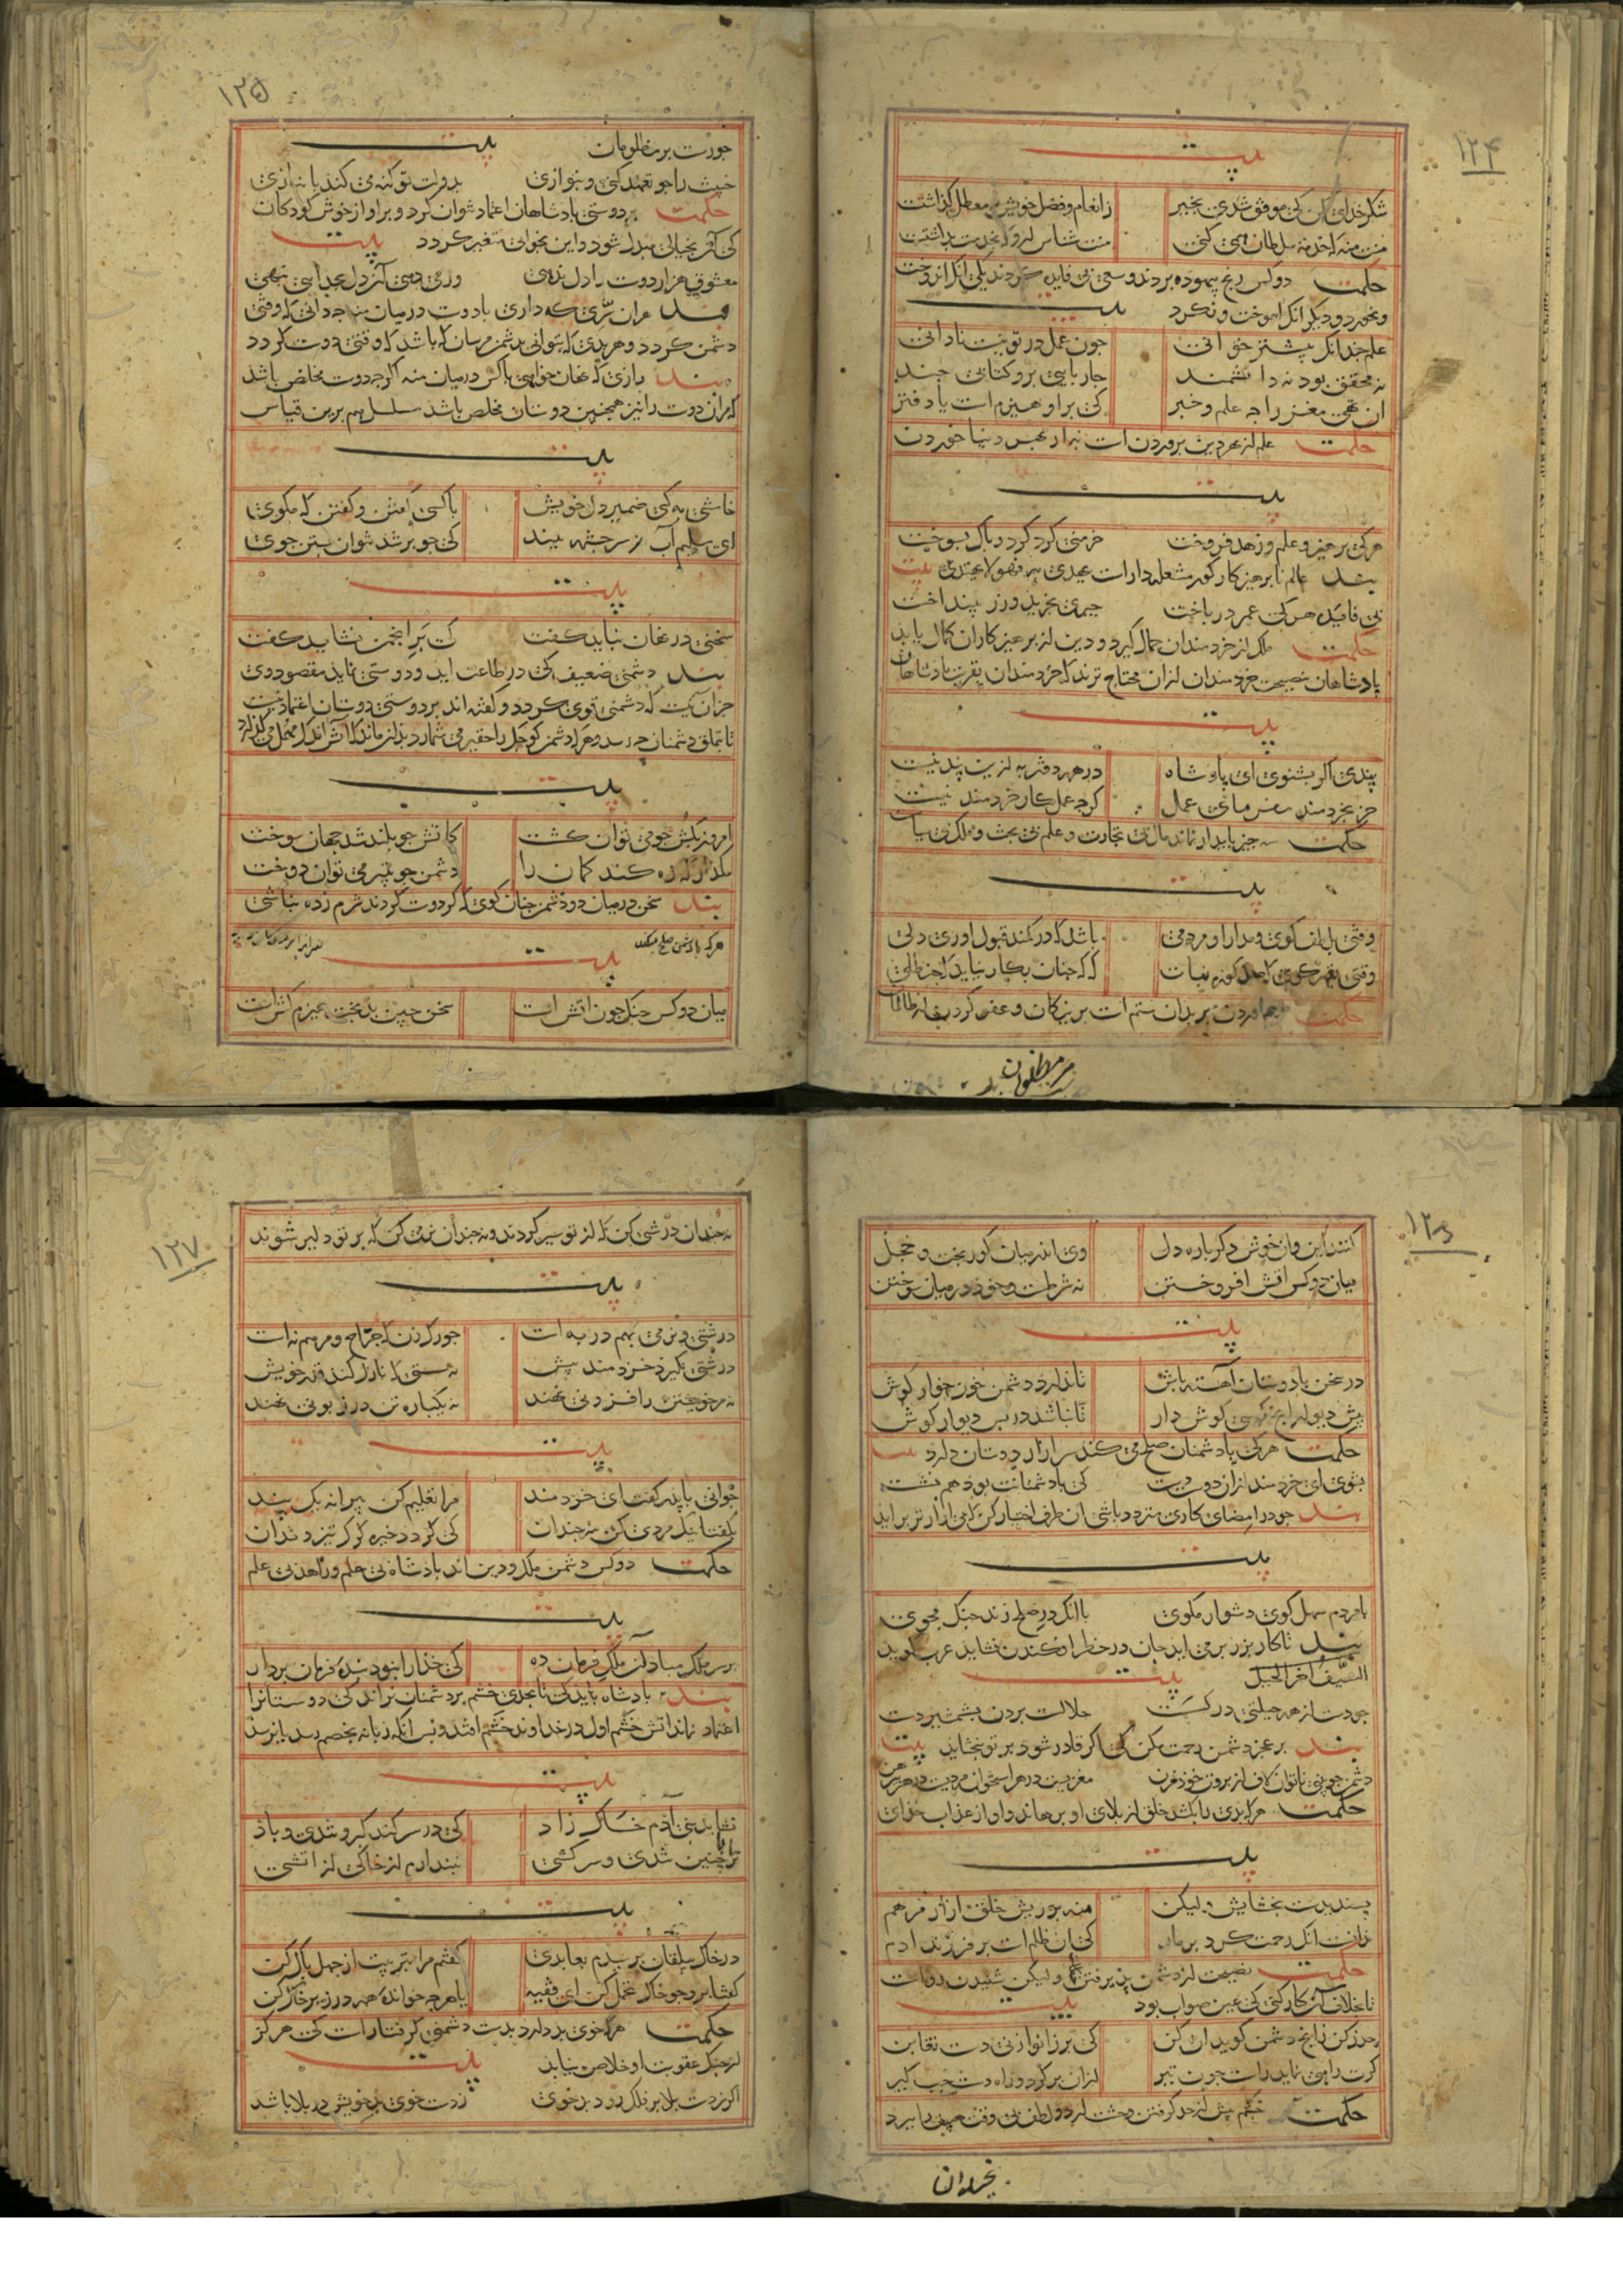 ۱۲۴
بیت
شکر خدای کن کی موفق شدی بخیر زانعام و فضل خویش نه معطل گذاشتت
منت منه که خدمة سلطان همی کنی منت شناس ازو که بخدمت بداشتت
حکمت دو کس رنج بیهوده بردند و سعی بی فایده کردند یکی آنک اندوخت
و نخورد و دیگر آنک آموخت و نکرد بیت
علم چندانک بیشتر خوانی چون عمل در تو نیست نادانی
نه محقق بود نه دانشمند چارپایی برو کتابی چند
ان تهی مغز را چه علم و خبر کی بر او هیزم است یا دفتر
حکمت علم از بهر دین پروردن است نه از بهر دنیا خوردن
بیت
هر کی پرهیز و علم و زهد فروخت خرمنی گرد کرد و پاک بسوخت
پند عالم ناپرهیزکار کور مشعله دارست یهدی به و هو لا یهتدی بیت
بی فایده هر کی عمر در باخت چیزی نخرید و زر بینداخت
حکمت ملک از خردمندان جمال گیرد و دین از پرهیزکاران کمال یابد
پادشاهان بنصیحت خردمندان ازان محتاج ترند که خردمندان بقربت پادشاهان
بیت
پندی اگر بشنوی ای پادشاه در همه دفتر به ازین پند نیست
جز بخردمند مفرمای عمل گرچه عمل کار خردمند نیست
حکمت سه چیز پایدار نماند مال بی تجارت و علم بی بحث و ملک بی سیاست
بیت
وقتی بلطف گوی و مدارا و مردمی باشد که در کمند قبول اوری دلی
وقتی بقهر گوی که صد کوزه نبات که که چنان بکار نیاید که حنظلی
حکمت رحم اوردن بر بدان ستم است بر نیکان و عفو کردن از ظالمان
بر مظلومان
۱۲۵
جورست بر مظلومان بیت
خبیث را چو تعهد کنی و بنوازی بدولت تو گنه می کند بانبازی
حکمت بر دوستی پادشاهان اعتماد نتوان کرد و بر اواز خوش کودکان
کی آن بخیالی مبدل شود و این بخوابی متغیر گردد بیت
معشوق هزار دوست را دل ندهی ور می دهی آن دل بجدایی بنهی
پند هران سرّی که داری با دوست در میان منه چه دانی که وقتی
دشمن گردد و هر بدی که بتوانی بدشمن مرسان که باشد که وقتی دوست گردد
پند رازی که نهان خواهی با کس در میان منه اگر چه دوست مخلص باشد
که مران دوست را نیز همچنین دوستان مخلص باشد مسلسل هم برین قیاس
بیت
خامشی به کی ضمیر دل خویش با کسی گفتن و گفتن که مگوی
ای سلیم آب ز سر چشمه ببند کی چو پر شد نتوان بستن جوی
بیت
سخنی در نهان نباید گفت که بر انجمن نشاید گفت
پند دشمنی ضعیف کی در طاعت اید و دوستی نماید مقصود وی
جزان نیست که دشمنی قوی گردد و گفته اند بر دوستی دوستان اعتماد نیست
تا بتملق دشمنان چه رسد و هر که دشمن کوچک را حقیر می شمارد بدان ماند که آتش اندک را مهمل می گذارد
بیت
امروز بکش چو می توان کشت کاتش چو بلند شد جهان سوخت
مگذار که زه کند کمان را دشمن چو بتیر می توان دوخت
پند سخن در میان دو دشمن چنان گوی که گر دوست گردند شرم زده نباشی
هر که با دشمن صلح میکند
بیت
میان دو کس جنک چون آتش است سخن چین بدبخت هیزم کش است
۱۲۶
کنند این و آن خوش دگر باره دل وی اندر میان کور بخت و خجل
میان دو کس آتش افروختن نه شرطست و خود در میان سوختن
بیت
در سخن با دوستان آهسته باش تا ندارد دشمن خون خوار گوش
پیش دیوار انچ گویی گوش دار تا نباشد در پس دیوار گوش
حکمت هر کی با دشمنان صلح می کند سر ازار دوستان دارد بیت
بشوی ای خردمند ازان دوست دست کی با دشمنانت بود هم نشست
پند چو در امضای کاری متردد باشی ان طرف اختیار کن که بی ازارتر براید
بیت
با مردم سهل گوی دشوار مگوی با انک در صلح زند جنگ مجوی
پند تا کار بزر بر می اید جان در خطر افکندن نشاید عرب گوید
السَّیفُ آخر الحیل بیت
چو دست از همه حیلتی در گسست حلالست بردن بشمشیر دست
پند بر عجز دشمن رحمت مکن کی اگر قادر شود بر تو نبخشاید بیت
دشمن چو بینی ناتوان لاف از بروت خود مزن مغزیست در هر استخوان مردیست در هر پیرهن
حکمت هر که بدی را بکشد خلق از بلای او برهاند و او را از عذاب خدای
بیت
پسندیدست بخشایش ولیکن منه بر ریش خلق ازار مرهم
ندانست انک رحمت کرد بر مار کی ان ظلم است بر فرزند ادم
حکمت نصیحت از دشمن پذیرفتن خطاست ولیکن شنیدن رواست
تا بخلاف آن کار کنی کی عین صواب بود بیت
حذر کن زانچ دشمن گوید ان کن کی بر زانو زنی دست تغابن
گرت راهی نماید راست چون تیر ازان برگرد و راه دست چپ گیر
حکمت خشم بیش از حد گرفتن وحشت ارد و لطف بی وقت هیبت ببرد
نه چندان
۱۲۷
نه چندان درشتی کن که از تو سیر گردند و نه چندان نرمی کن که بر تو دلیر شوند
بیت
درشتی و نرمی بهم در به است چو رگ زن که جراح و مرهم نه است
درشتی نگیرد خردمند پیش نه سستی که نازل کند قدر خویش
نه مر خویشتن را فزونی نهد نه یکباره تن در زبونی نهد
بیت
جوانی با پدر گفت ای خردمند مرا تعلیم کن پیرانه یک پند
بگفتا نیک مردی کن نه چندان کی گردد خیره گرگ تیز دندان
حکمت دو کس دشمن ملک و دین اند پادشاه بی حلم و زاهد بی علم
بیت
بر سر ملک مباد آن ملک فرمان ده کی خدا را نبود بندۀ فرمان بردار
پند پادشاه باید کی تا بحدی خشم بر دشمنان نراند کی دوستانرا
اعتماد نماند آتش خشم اول در خداوند خشم افتد و پس آنگه زبانه بخصم رسد یا نرسد
بیت
نشاید بنی آدم خاک زاد کی در سر کند کبر و تندی و باد
ترا با چنین تندی و سرکشی نپندارم از خاکی از اتشی
بیت
در خاک بیلقان برسیدم بعابدی گفتم مرا بتربیت از جهل پاک کن
گفتا برو چو خاک تحمل کن ای فقیه یا هر چه خواندۀ همه در زیر خاک کن
حکمت هر که خوی بد دارد بدست دشمنی گرفتارست کی هر گز
از چنگ عقوبت او خلاص نیابد بیت
اگر زدست بلا بر فلک رود بدخوی زدست خوی بد خویش در بلا باشد